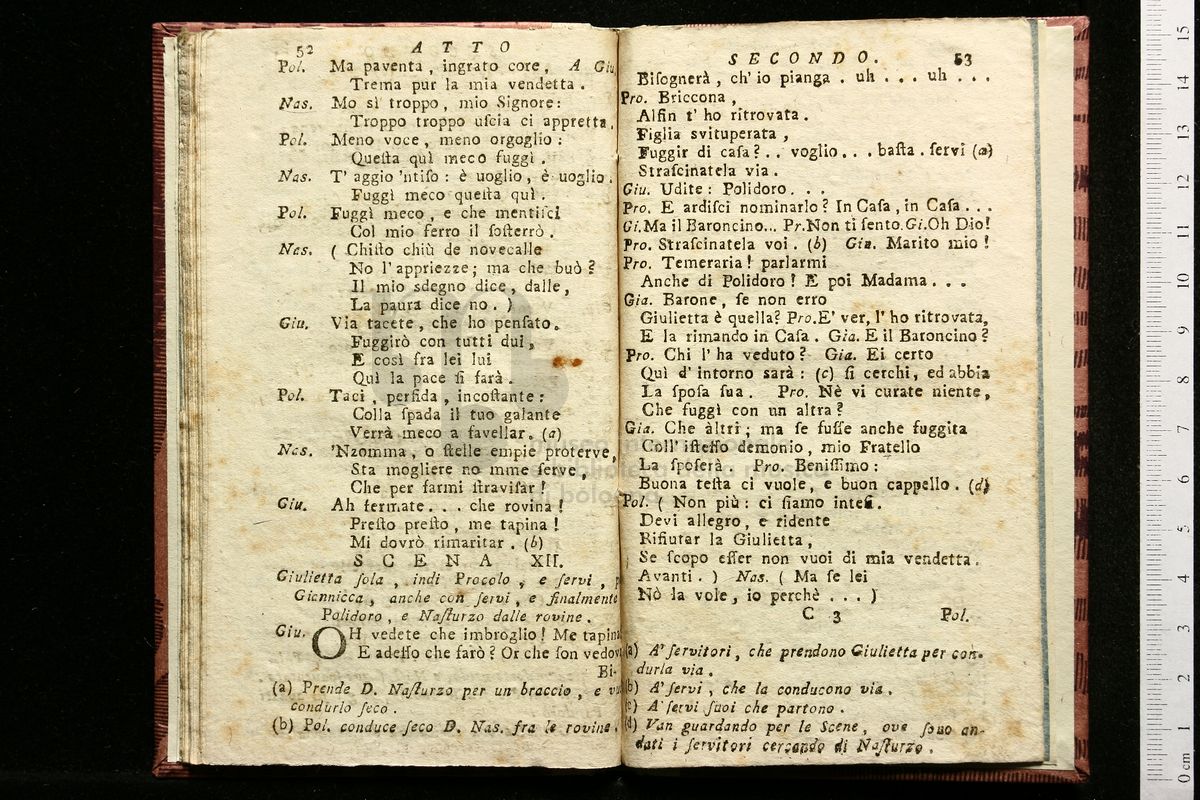 52 ATTO
Pol. Ma paventa, ingrato core, A Giu
Trema pur la mia vendetta.
Nas. Mo sì troppo, mio Signore:
Troppo troppo uſcia ci appretta.
Pol. Meno voce, meno orgoglio:
Queſta quì meco fuggì.
Nas. T' aggio 'ntiſo: è uoglio, è uoglio.
Fuggì meco queſta quì.
Pol. Fuggì meco, e che mentiſci
Col mio ferro il ſoſterrò.
Nas. ( Chiſto chiù de novecalle
No l' appriezze; ma che buò?
Il mio sdegno dice, dalle,
La paura dice no. )
Giu. Via tacete, che ho penſato.
Fuggirò con tutti dui,
E così fra lei lui
Quì la pace ſi farà.
Pol. Taci, perfida, incoſtante:
Colla ſpada il tuo galante
Verrà meco a favellar. (a)
Nas. 'Nzomma, o ſtelle empie proterve,
Sta mogliere no mme ſerve,
Che per farmi ſtraviſar!
Giu. Ah fermate... che rovina!
Preſto preſto, me tapina!
Mi dovrò rimaritar. (b)
SCENA XII.
Giulietta ſola, indi Procolo, e ſervi, p
Giannicca, anche con ſervi, e finalmente
Polidoro, e Naſturzo dalle rovine.
Giu. OH vedete che imbroglio! Me tapina
E adeſſo che farò? Or che ſon vedov
Bi-
(a) Prende D. Naſturzo per un braccio, e vu
condurlo ſeco.
(b) Pol. conduce ſeco D. Nas. fra le rovine.
SECONDO. 53
Biſognerà, ch' io pianga. uh... uh...
Pro. Briccona,
Alfin t' ho ritrovata.
Figlia svituperata,
Fuggir di caſa?.. voglio... baſta. ſervi (a)
Straſcinatela via.
Giu. Udite: Polidoro...
Pro. E ardiſci nominarlo? In Caſa, in Caſa...
Gi. Ma il Baroncino... Pr. Non ti ſento. Gi. Oh Dio!
Pro. Straſcinatela voi. (b) Giu. Marito mio!
Pro. Temeraria! parlarmi
Anche di Polidoro! E poi Madama...
Gia. Barone, ſe non erro
Giulietta è quella? Pro. E' ver, l' ho ritrovata,
E la rimando in Caſa. Gia. E il Baroncino?
Pro. Chi l' ha veduto? Gia. Ei certo
Quì d' intorno sarà: (c) ſi cerchi, ed abbia
La ſpoſa ſua. Pro. Nè vi curate niente,
Che fuggì con un altra?
Gia. Che àltri; ma ſe fuſſe anche fuggita
Coll' iſteſſo demonio, mio Fratello
La ſpoſerà. Pro. Beniſſimo:
Buona teſta ci vuole, e buon cappello. (d)
Pol. ( Non più: ci ſiamo inteſi.
Devi allegro, e ridente
Rifiutar la Giulietta,
Se ſcopo eſſer non vuoi di mia vendetta.
Avanti. ) Nas. ( Ma ſe lei
Nò la vole, io perchè... )
C 3 Pol.
(a) A' ſervitori, che prendono Giulietta per con-
durla via.
(b) A' ſervi, che la conducono via.
(c) A' ſervi ſuoi che partono.
(d) Van guardando per le Scene, ove ſono an-
dati i ſervitori cercando di Naſturzo.